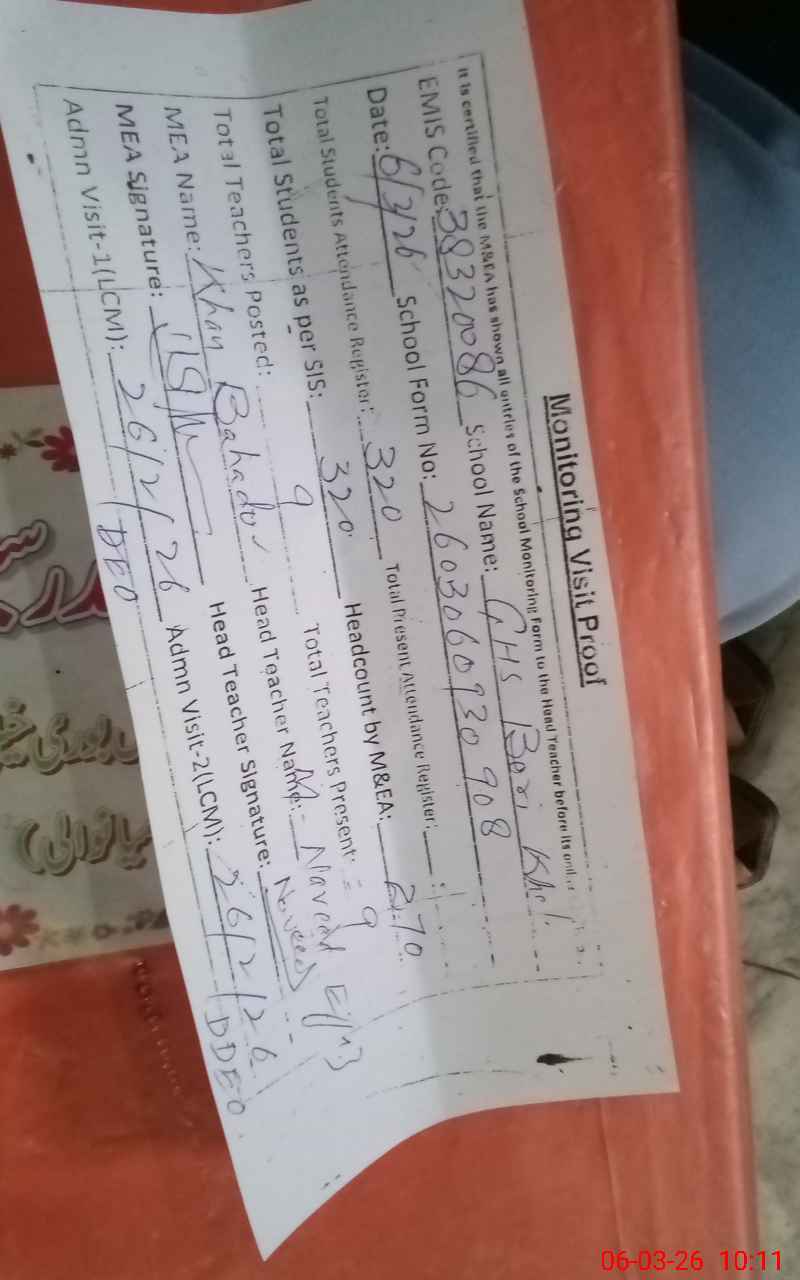 Monitoring Visit Proof
It is certified that the M&EA has shown all entries of the School Monitoring Form to the Head Teacher before its
EMIS Code: 38320086 School Name: GHS Bori Khel
Date: 6/3/26 School Form No: 2603060930908
Total Students Attendance Register: 320 Total Present Attendance Register:
Total Students as per SIS: 320 Headcount by M&EA: 270
Total Teachers Posted: 9 Total Teachers Present: 9
MEA Name: Khan Bahadur Head Teacher Name: M. Naveed
MEA Signature: Head Teacher Signature: Naveed
Admn Visit-1(LCM): 26/2/26 Admn Visit-2(LCM): 26/2/26
DEO DDEO
06-03-26 10:11